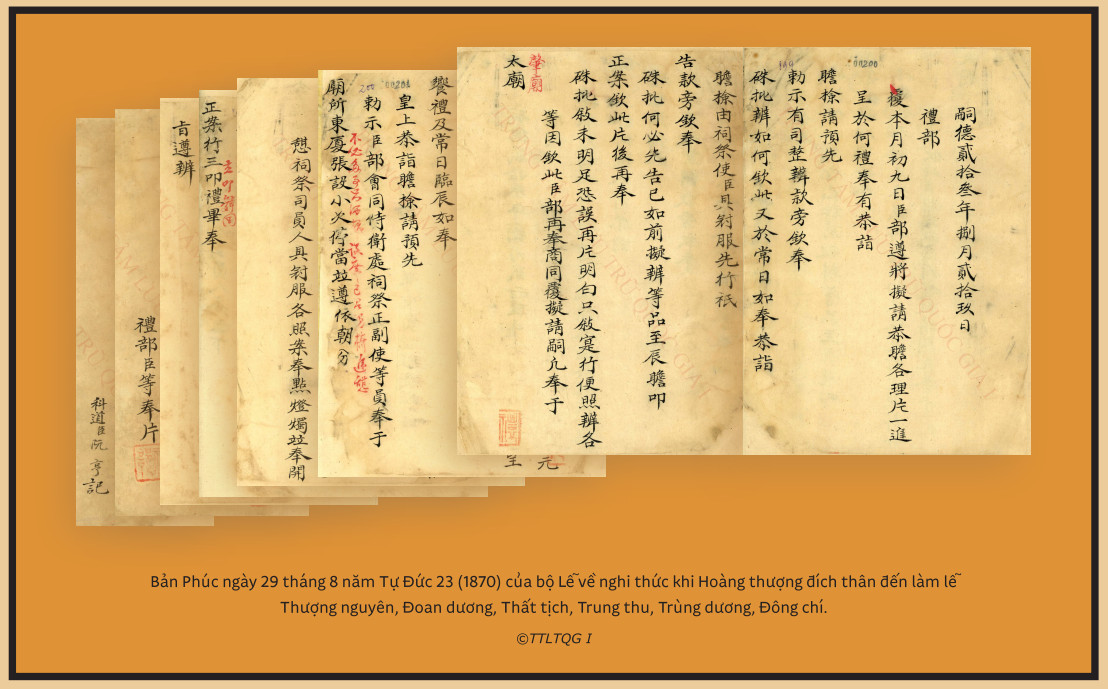 嗣德貳拾叁年捌月貳拾玖日
禮部
覆本月初九日臣部遵將擬請恭瞻各理片一進
呈於何禮奉有恭詣
瞻㨿請預先
勅示有司整辦款旁欽奉
硃批辨如何欽此又於常日如奉恭詣
瞻㨿由祠祭使臣具衬服先行祇
告款旁欽奉
硃批何必先告已如前擬辨等品至辰瞻叩
正案欽此片後再奉
硃批敘未明足恐誤再片明白只敘寔行便照辨各
等因欽此臣部再奉商同覆擬請嗣凡奉于
肇廟
太廟
饗禮及常日臨辰如奉
皇上恭詣瞻㨿請預先
勅示臣部會同侍衛處祠祭正副使等員奉于
廟所東廈張設小次停當竝遵依朝
憩祠祭司員人具衬服各照案奉點燈燭竝奉開
立叩
正案行三叩禮畢奉
旨遵辨
禮部臣等奉片
科道臣阮亨記
Bản Phúc ngày 29 tháng 8 năm Tự Đức 23 (1870) của bộ Lễ về nghi thức khi Hoàng thượng đích thân đến làm lễ
Thượng nguyên, Đoan dương, Thất tịch, Trung thu, Trùng dương, Đông chí.
©TTLTQG I